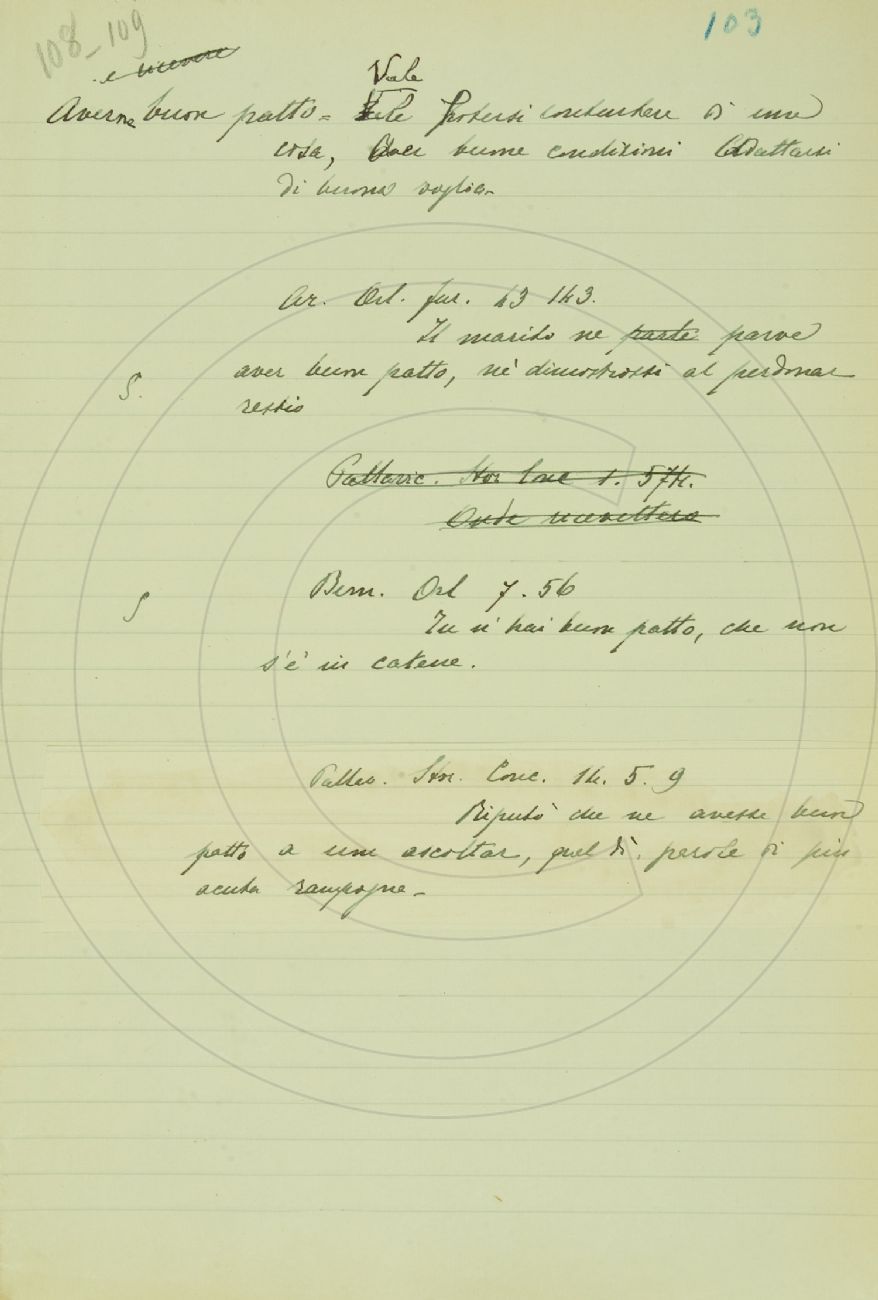 108-109
103
e ricevere
Vale
Averne buon patto = Vale Potersi contentare di una
cosa, Aver buone condizioni Adattarsi
di buona voglia-
Ar. Orl. fur. 43 143.
Il marito ne parte parve
aver buon patto, nè dimostrossi al perdonar
S.
restio
Pallavic. Stor Conc 1. 574.
Onde
Bern. Orl 7. 56
S
Tu n'hai buon patto, che non
s'è in catene.
Pallav. Stor. Conc. 14. 5. 9
Riputò che ne avesse buon
patto a non ascoltar, quel dì, parole di più
acuta rampogna-